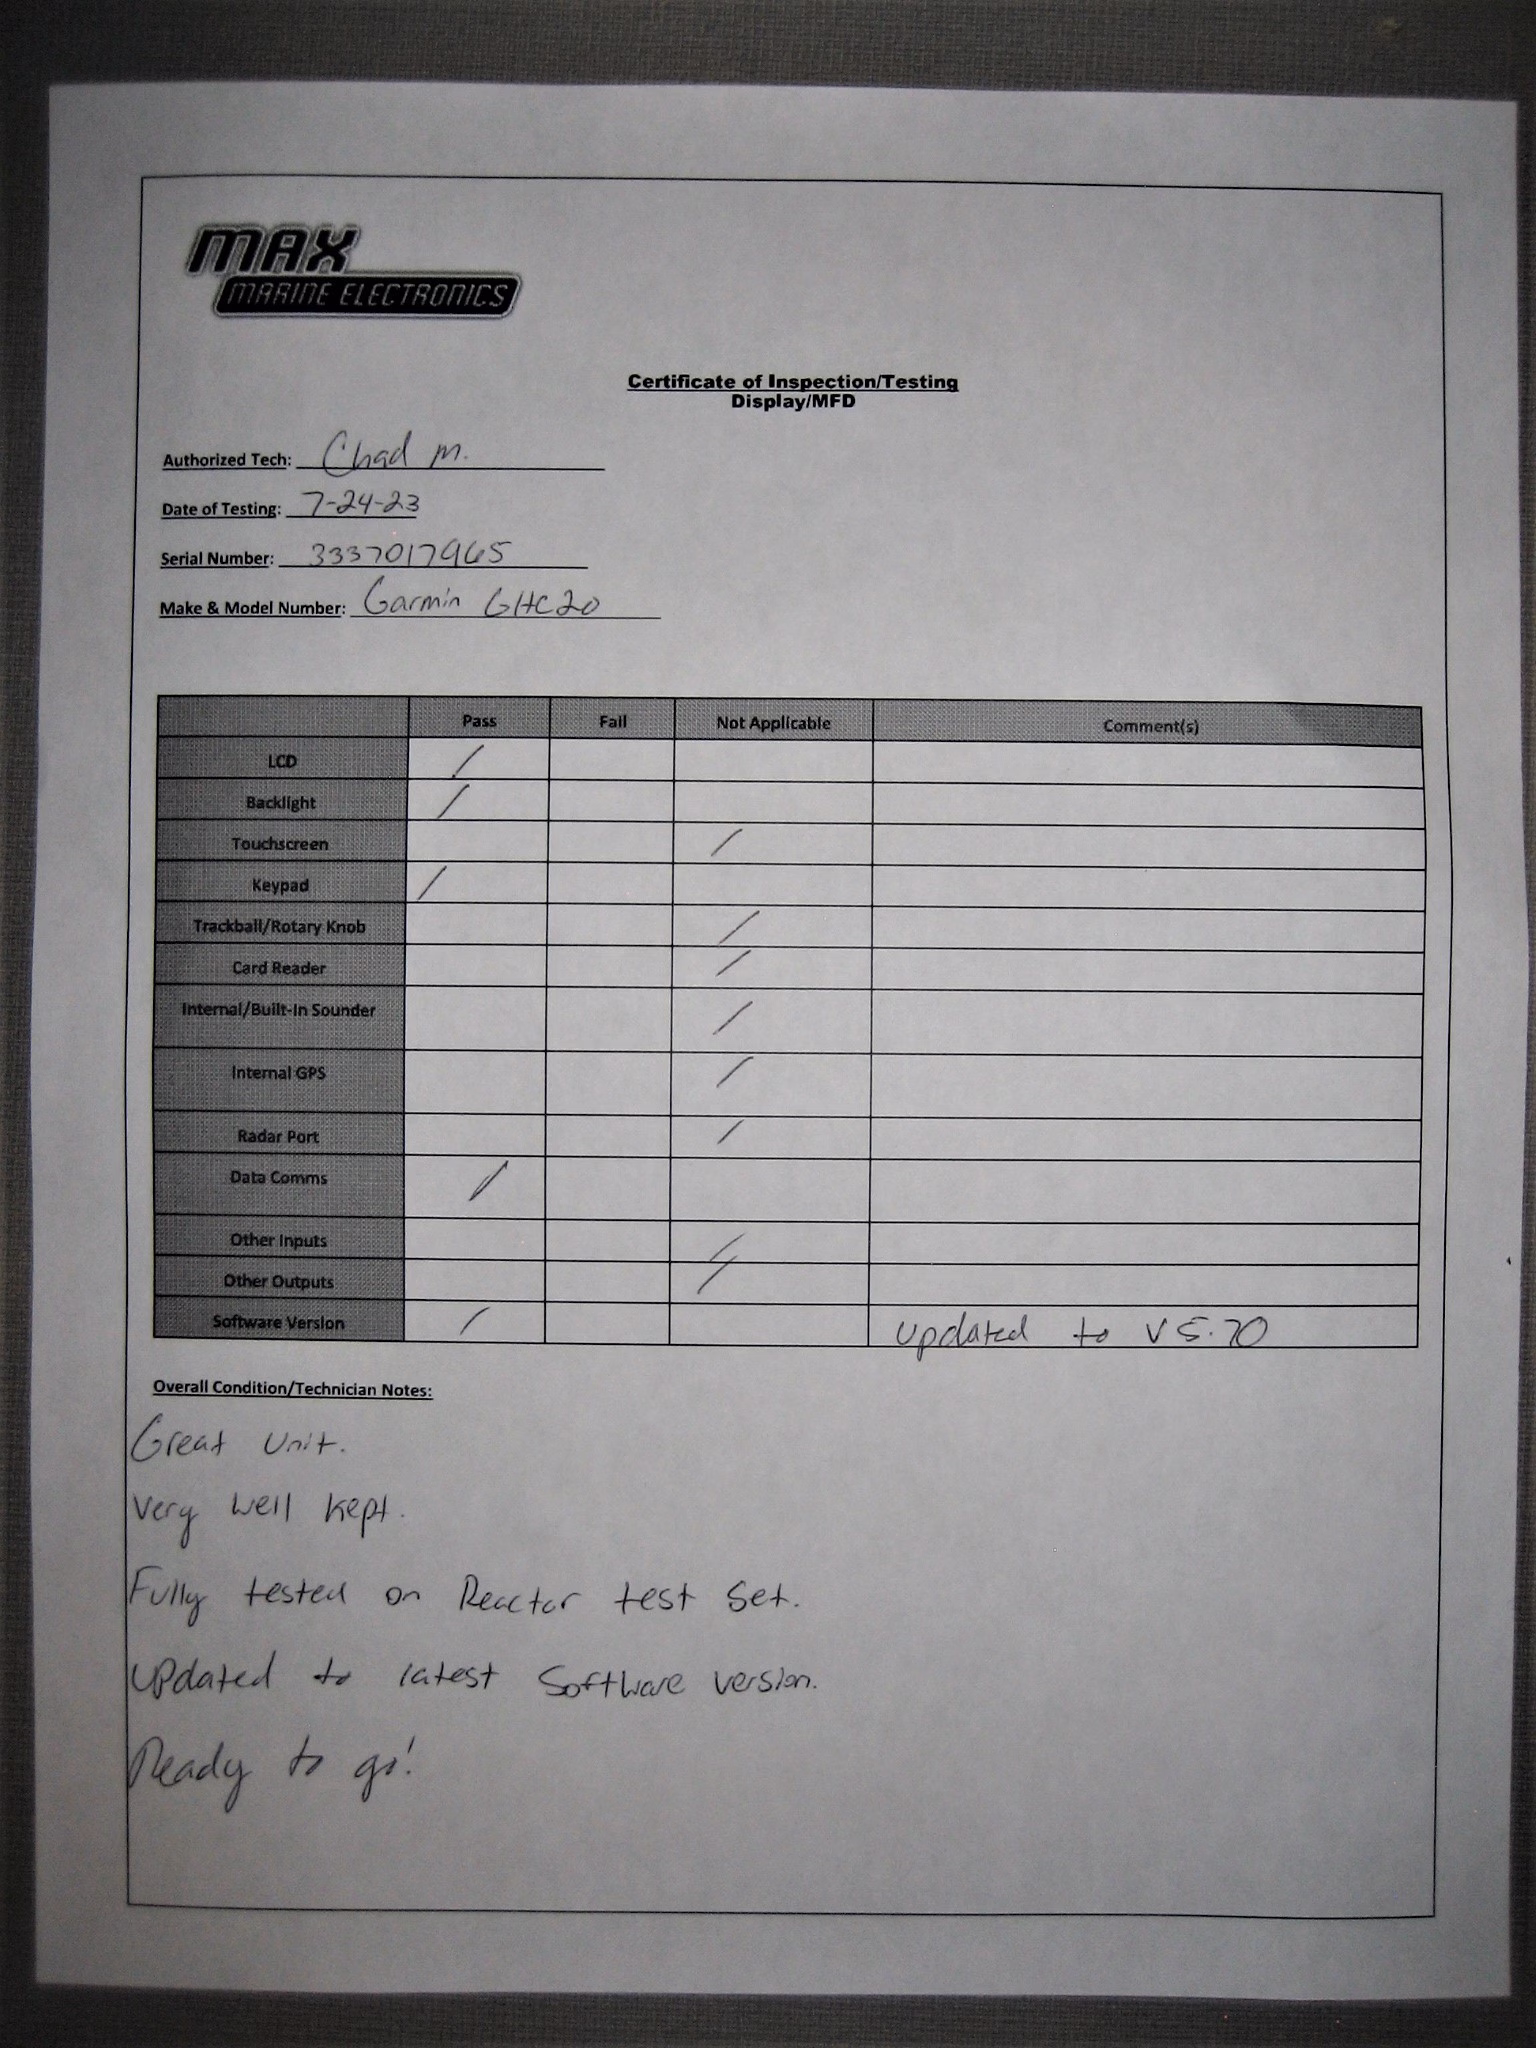 MAX
MARINE ELECTRONICS
Certificate of Inspection/Testing
Display/MFD
Authorized Tech: Chad M.
Date of Testing: 7-24-23
Serial Number: 3337017965
Make & Model Number: Garmin GHC20
Pass Fail Not Applicable Comment(s)
LCD /
Backlight /
Touchscreen /
Keypad /
Trackball/Rotary Knob /
Card Reader /
Internal/Built-In Sounder /
Internal GPS /
Radar Port /
Data Comms /
Other Inputs /
Other Outputs /
Software Version / updated to V 5.70
Overall Condition/Technician Notes:
Great unit.
Very well kept.
Fully tested on Reactor test set.
updated to latest Software version.
Ready to go!